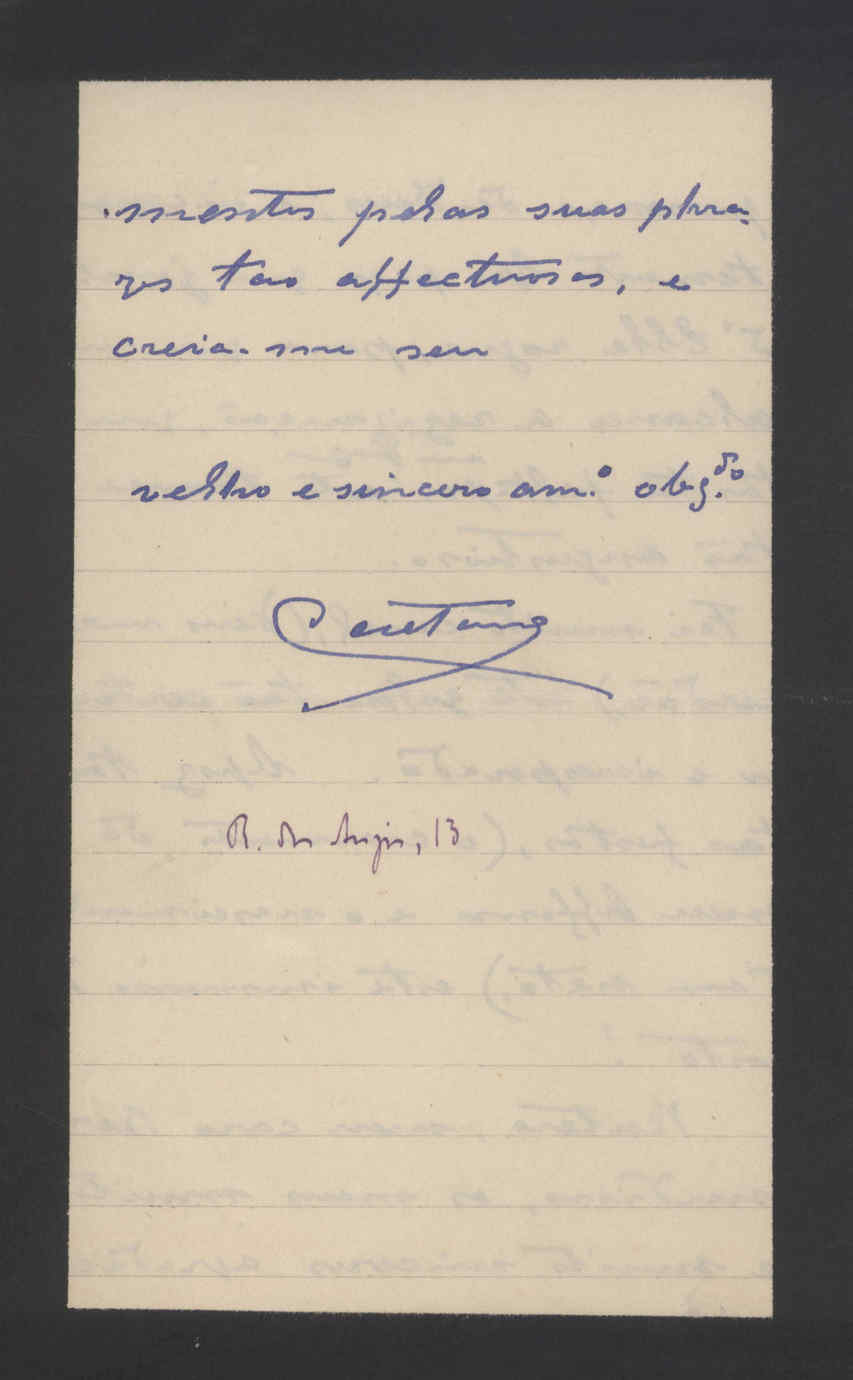 mentos pelas suas phra-
zes tao affectuosas, e
creia-me seu
velho e sincero am.º obg.do
Caetano
R. dos Anjos, 13